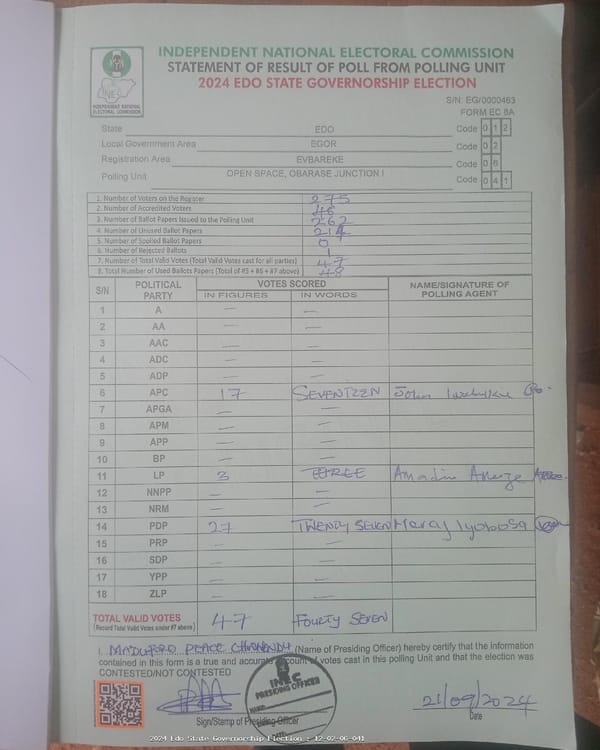 INDEPENDENT NATIONAL ELECTORAL COMMISSION
STATEMENT OF RESULT OF POLL FROM POLLING UNIT
2024 EDO STATE GOVERNORSHIP ELECTION
INEC
INDEPENDENT NATIONAL ELECTORAL COMMISSION
S/N: EG/0000463
FORM EC 8A
State EDO Code 0 1 2
Local Government Area EGOR Code 0 2
Registration Area EVBAREKE Code 0 6
Polling Unit OPEN SPACE, OBARASE JUNCTION I Code 0 4 1
1. Number of Voters on the Register 275
2. Number of Accredited Voters 48
3. Number of Ballot Papers Issued to the Polling Unit 262
4. Number of Unused Ballot Papers 214
5. Number of Spoiled Ballot Papers 0
6. Number of Rejected Ballots 1
7. Number of Total Valid Votes (Total Valid Votes cast for all parties) 47
8. Total Number of Used Ballots Papers (Total of #5 + #6 + #7 above) 48
S/N POLITICAL PARTY VOTES SCORED NAME/SIGNATURE OF POLLING AGENT
IN FIGURES IN WORDS
1 A — —
2 AA — —
3 AAC — —
4 ADC — —
5 ADP — —
6 APC 17 SEVENTEEN John
7 APGA — —
8 APM — —
9 APP — —
10 BP — —
11 LP 3 THREE Amadin
12 NNPP — —
13 NRM — —
14 PDP 27 TWENTY SEVEN Mercy Iyobosa
15 PRP — —
16 SDP — —
17 YPP — —
18 ZLP — —
TOTAL VALID VOTES 47 FOURTY SEVEN
(Record Total Valid Votes under #7 above)
I, MADUFORO PEACE (Name of Presiding Officer) hereby certify that the information
contained in this form is a true and accurate account of votes cast in this polling Unit and that the election was
CONTESTED/NOT CONTESTED
INEC
PRESIDING OFFICER
21/09/2024
Sign/Stamp of Presiding Officer Date
2024 Edo State Governorship Election : 12-02-06-041